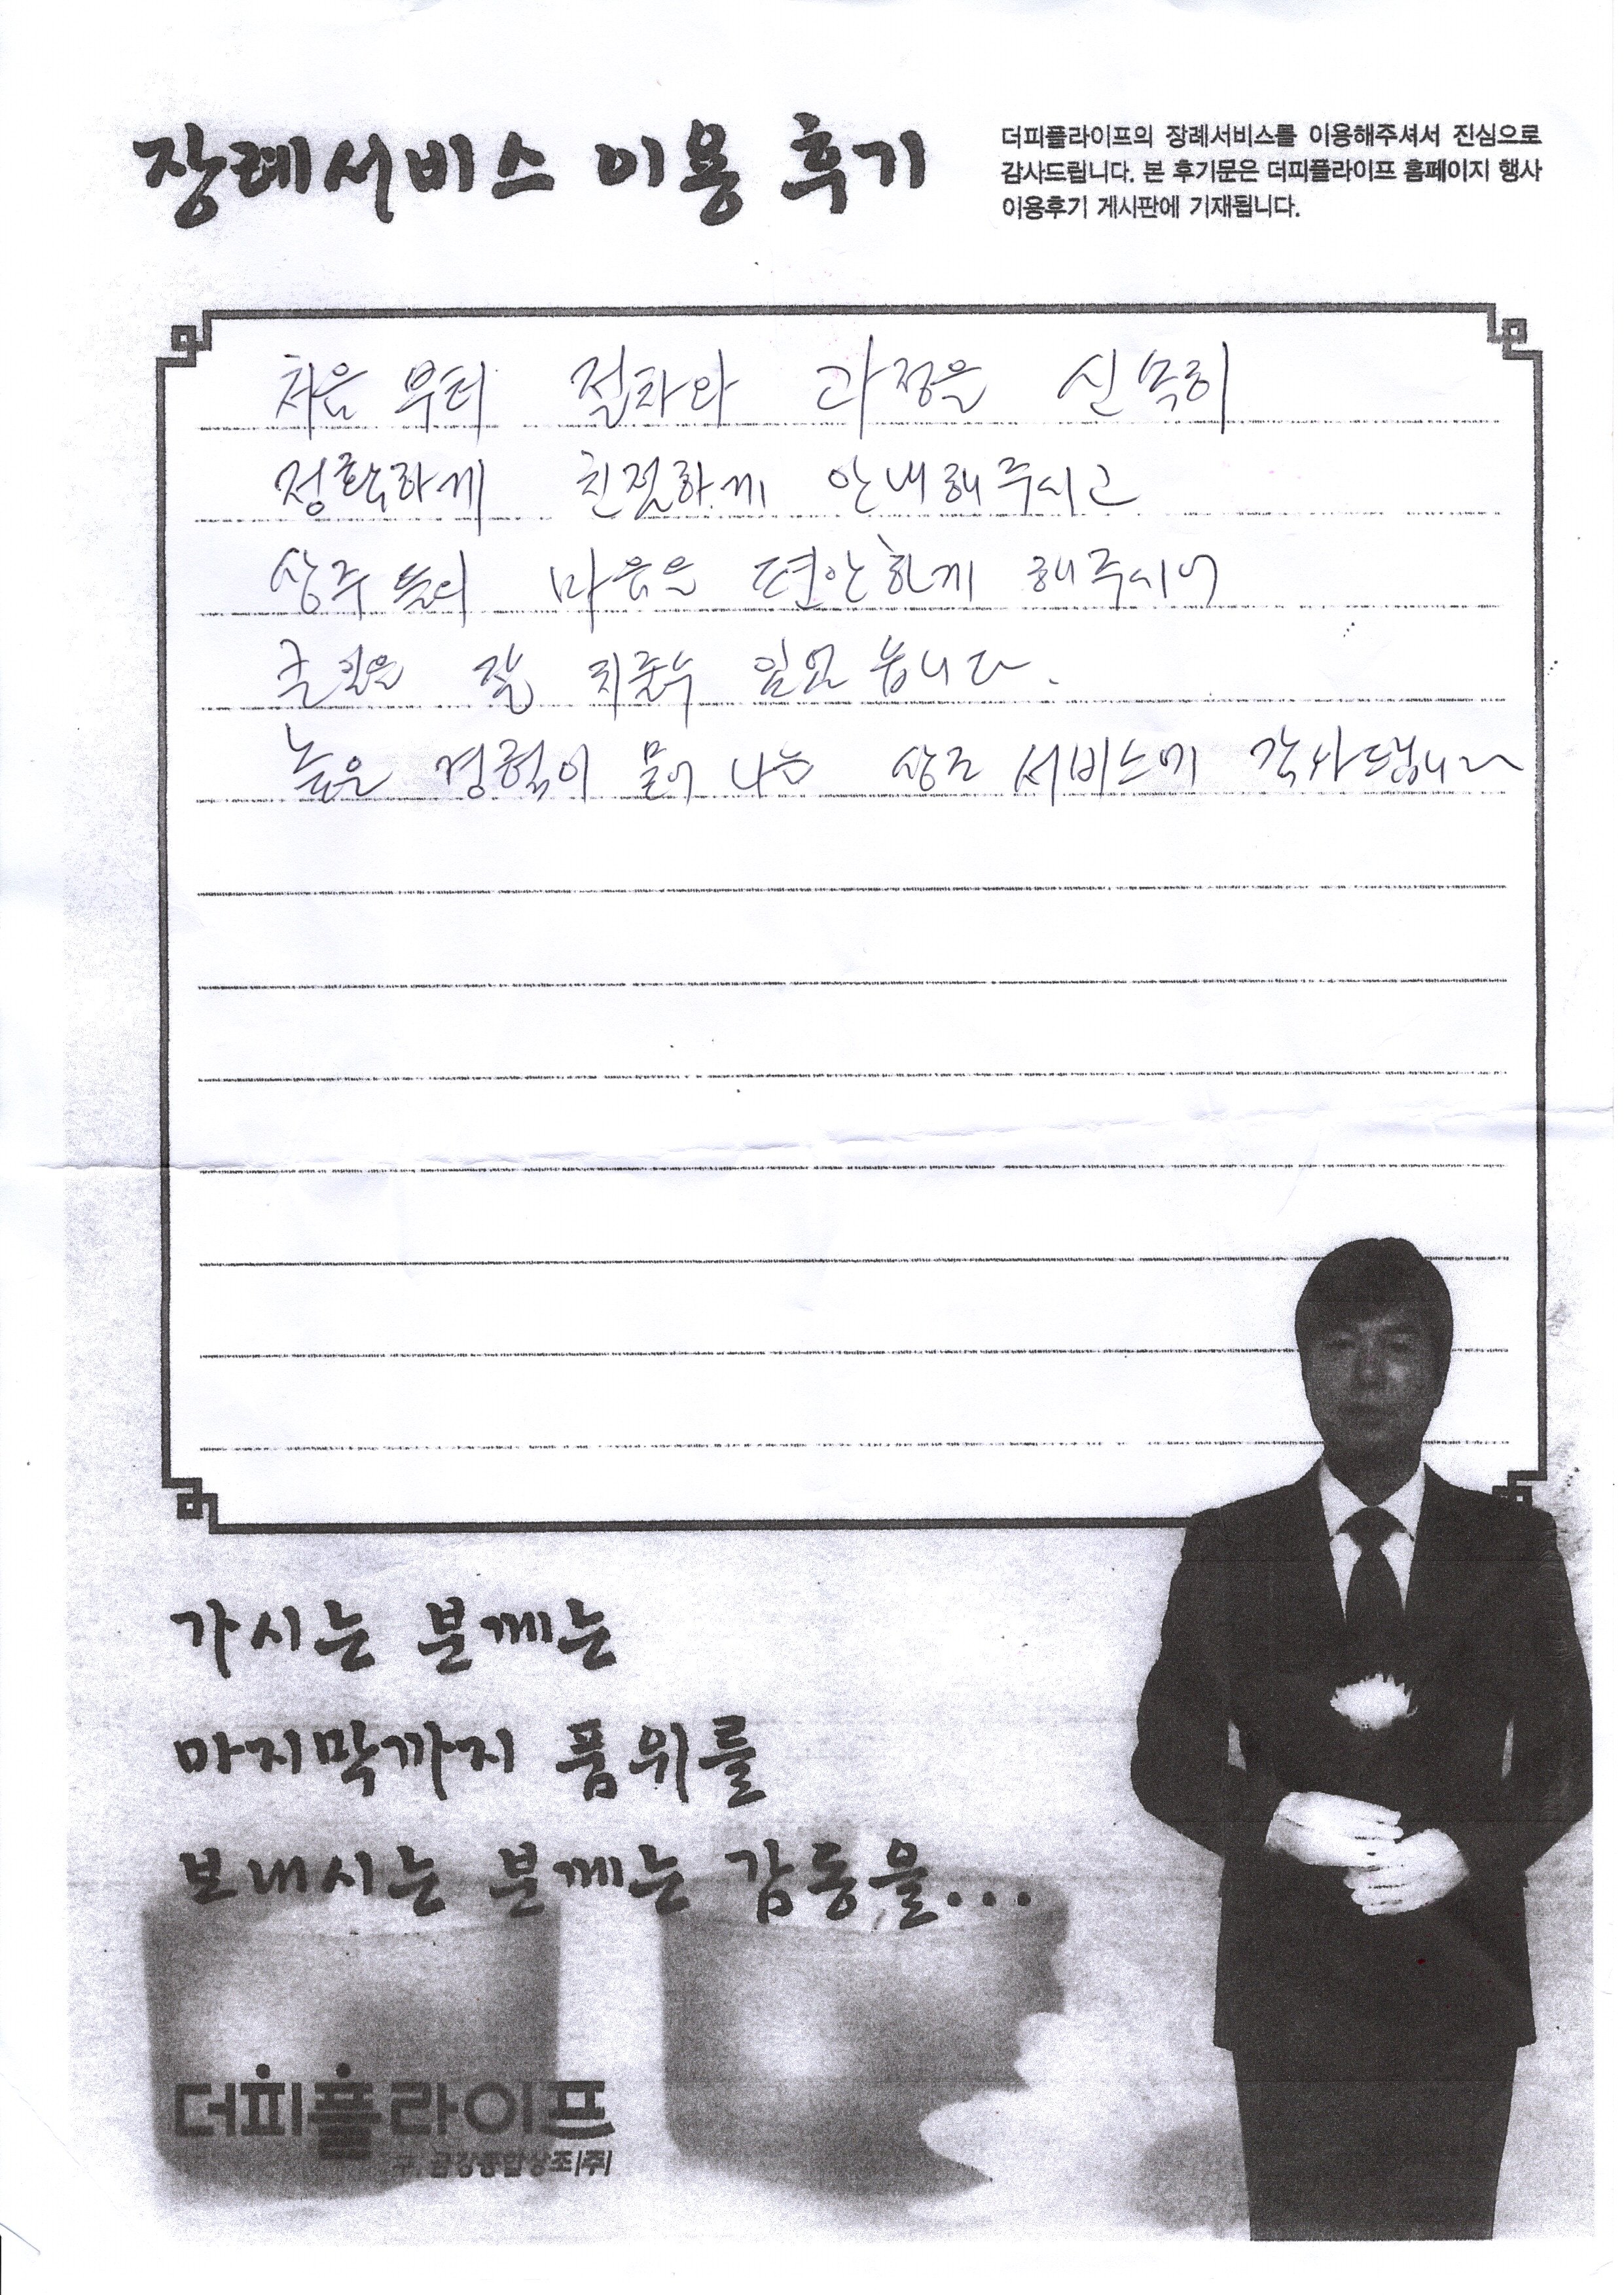 장례서비스 이용 후기
더피플라이프의 장례서비스를 이용해주셔서 진심으로
감사드립니다. 본 후기문은 더피플라이프 홈페이지 행사
이용후기 게시판에 기재됩니다.
처음 부터 절차와 과정을 신속히
정확하게 친절하게 안내해주시고
상주들의 마음을 편안하게 해주시어
큰일을 잘 치룰수 있었습니다.
높은 경험이 묻어나는 상조 서비스에 감사드립니다
가시는 분께는
마지막까지 품위를
보내시는 분께는 감동을...
더피플라이프
구. 금강종합상조(주)